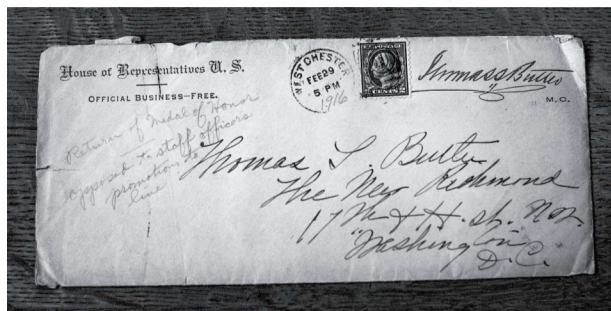 House of Representatives U. S.
OFFICIAL BUSINESS–FREE.
WEST CHESTER
FEB 29
5 PM
1916
U.S. POSTAGE
2 CENTS 2
Thomas S Butler
M.C.
Return of Medal of Honor
opposed to staff officers
promotion to
line
Thomas S. Butler
The New Richmond
17th & H. st. N.W.
Washington
D.C.